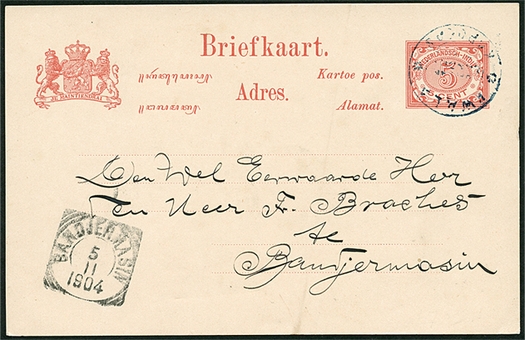 Briefkaart.
Kartoe pos.
Adres.
Alamat.
JE MAINTIENDRAI
NEDERLANDSCH-INDIE
5
CENT
Den Wel Eerwaarde Heer
Ten Heer F. Braches
te
Bandjermasin
BANDJERMASIN
5
11
1904